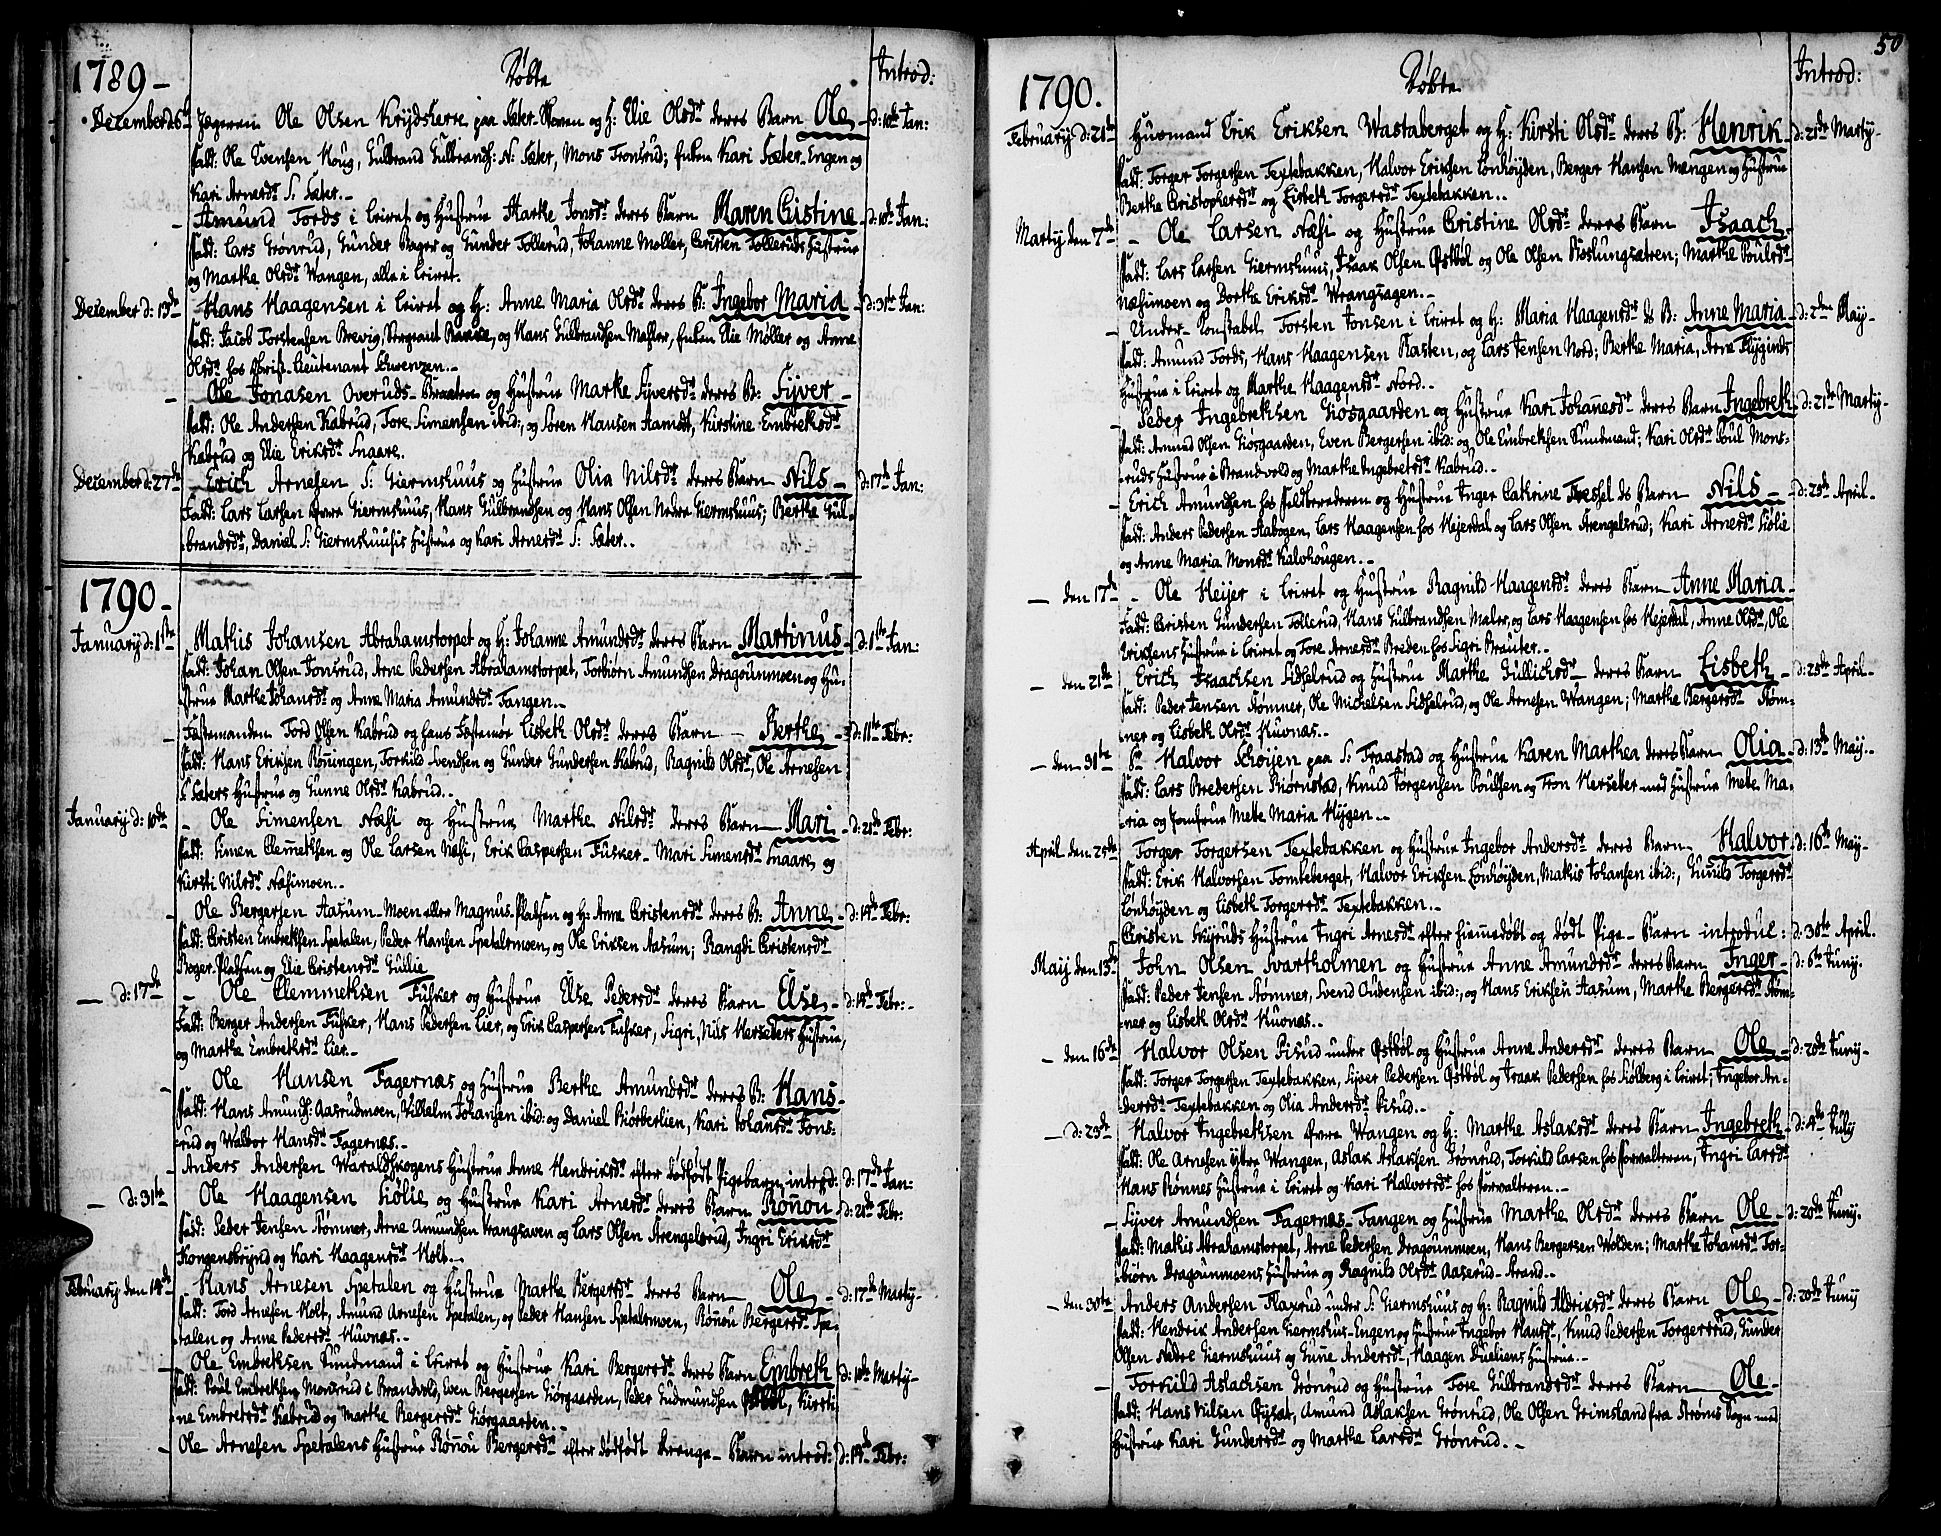 1789 -
Döbte
Introd:
December d: 6te Jægeren Ole Olsen Krydsherre paa Sæter-Skoven og H: Elie Olsdr deres Barn Ole d: 10de Jan:
Fadd: Ole Evensen Houg, Gulbrand Gulbrands: N: Sæter, Mons Tronsrud; Enken Kari Sæter-Engen og
Kari Arnesdr S: Sæter.
- Amund Fords i Leiret og Hustrue Marthe Jonsdr deres Barn Maren Cristine d: 10de Jan:
Fadd: Lars Grönrud, Gunder Bager og Gunder Tollerud, Johanne Møller, Cristen Tolleruds Hustrue
og Marthe Olsdr Wangen, alle i Leiret.
December d: 13de Hans Haagensen i Leiret og H: Anne Maria Olsdr deres B: Ingebor Maria d: 31te Jan:
Fadd: Jacob Torstensen Brevig, Sergeant og Hans Gulbrandsen Mahler, Enken Elie Møller og Anne
Olsdr hos Lieutenant
- Ole Jonasen Overuds-Braaten og Hustrue Marthe Syversdr deres B: Syver -
Fadd: Ole Andersen Kabrud, Tore Simensen ibid:, og Sören Hansen Aamodt, Kirstine Embreksdr
Kabrud og Elie Eriksdr Snaare.
December d: 27de Erich Arnesen S: Giermshuus og Hustrue Olia Nilsdr deres Barn Nils - d: 17de Jan:
Fadd: Lars Larsen Øvre Giermshuus, Hans Gulbrandsen og Hans Olsen Nedre Giermshuus; Berthe Gul-
brandsdr, Daniel S: Giermshuusis Hustrue og Kari Arnesdr S: Sæter.
1790 -
Januarij d: 1ste Mathis Johansen Abrahamstorpet og H: Johanne Amundsdr deres Barn Martinus d: 1ste Jan:
Fadd: Johan Olsen Jonsrud, Arne Pedersen Abrahamstorpet, Torbiörn Amundsen Dragounmoen og Hu-
strue Marthe Johansdr og Anne Maria Amundsdr Tangen.
- Festemanden Tord Olsen Kabrud og hans Festemöe Lisbeth Olsdr deres Barn Berthe d: 11te Febr:
Fadd: Hans Eriksen Rönningen, Torkild Svendsen og Gunder Gundersen Kabrud, Ragnild Olsdr, Ole Arnesen
S: Sæters Hustrue og Gunne Olsdr Kabrud.
Januarij d: 10de - Ole Simensen Næsi og Hustrue Marthe Nilsdr deres Barn Mari d: 21de Febr:
Fadd: Simen Clemmethsen og Ole Larsen Næsi, Erik Caspersen Fusker - Mari Simensdr Snaare og
Kirsti Nilsdr Næsimoen.
- Ole Bergersen Aasum-Moen eller Magnus-Pladsen og H: Anne Cristensdr deres B: Anne d: 14de Febr:
Fadd: Cristen Embreksen Spetalen, Peder Hansen Spetalsmoen, og Ole Eriksen Aasum; Rangdi Cristensdr
Boger-Pladsen og Elie Cristensdr Gullie
- d: 17de - Ole Clemmethsen Fusker og Hustrue Else Pedersdr deres Barn Else d: 14de Febr:
Fadd: Berger Andersen Fusker, Hans Pedersen Lier, og Erik Caspersen Fusker, Sigri, Nils Hersebers Hustrue,
og Marthe Embreksdr Lier.
- Ole Hansen Fagernæs og Hustrue Berthe Amundsdr deres B: Hans -
Fadd: Hans Amunds: Aasrudmoen, Vilhelm Johansen ibid: og Daniel Biörberlien, Kari Johansdr Jons-
rud og Walbor Hansdr Fagernæs.
- Anders Andersen Waraldskogens Hustrue Anne Hendriksdr efter dödfödt Pigebarn introd: d: 17de Jan:
- d: 31te Ole Haagensen Siölie og Hustrue Kari Arnesdr deres Barn Rönou d: 21de Febr:
Fadd: Peder Jensen Stömner, Arne Amundsen Wrangsaven og Lars Olsen Arengelsrud, Ingri Eriksdr
Kongensbrynd og Kari Haagensdr Holt.
Februarij den 14de - Hans Arnesen Spetalen og Hustrue Marthe Bergersdr deres Barn Ole - d: 17de Martij -
Fadd: Tord Arnesen Holt, Amund Arnesen Spetalen, og Peder Hansen Spetalsmoen, Rönou Bergersdr Spe-
talen og Anne Pedersdr Huvnæs.
- Ole Embreksen Sundmand i Leiret og Hustrue Kari Bergersdr deres Barn Embreth d: 10de Martij -
Fadd: Poul Embreksen Monsrud i Brandvold, Even Bergersen Giörgaarden, Peder Gudmundsen Kirsti-
ne Embretsdr Kabrud og Marthe Bergersdr Giörgaarden.
- Ole Arnesen Spetalens Hustrue Rönou Bergersdr efter dödfödt Drenge-Barn introd: d: 14de Febr:
50
1790.
Döbte
Introd:
Februarij d: 21de Huusmand Erik Eriksen Wastaberget og H: Kirsti Olsdr deres B: Henrik d: 21de Martij -
Fadd: Torger Torgersen Textebakken, Halvor Eriksen Lönhöyden, Berger Hansen Wangen og Hustrue
Berthe Christophersdr og Lisbeth Torgersdr Textebakken.
Martij den 7de - Ole Larsen Næsi og Hustrue Cristine Olsdr deres Barn Isaach -
Fadd: Lars Larsen Giermshuus, Isaak Olsen Østböl og Ole Olsen Marthe Poulsdr
Næsimoen og Dorthe Eriksdr Wrangsagen.
- Under-Konstabel Torsten Jonsen i Leiret og H: Maria Haagensdr ds B: Anne Maria d: 2den Maij -
Fadd: Amund Fords, Hans Haagensen Kasten, og Lars Jensen Nord; Berthe Maria, Arne Flyginds
Hustrue i Leiret og Marthe Haagensdr Nord.
- Peder Ingebrethsen Giösgaarden og Hustrue Kari Johannesdr deres Barn Ingebreth d: 21de Martij -
Fadd: Amund Olsen Giösgaarden, Even Bergersen ibid: og Ole Embreksen Sundmand; Kari Olsdr Poul Mons-
ruds Hustrue i Brandvold og Marthe Ingebretsdr Kabrud.
- Erich Amundsen hos Feldberederen og Hustrue Inger Cathrine ds Barn Nils - d: 25de April.
Fadd: Anders Pedersen Aabogen, Lars Haagensen hos Hejerdal og Lars Olsen Arengelsrud; Kari Arnesdr Siölie
og Anne Maria Monsdr Kalvhougen.
- den 17de - Ole Heijer i Leiret og Hustrue Ragnild Haagensdr deres Barn Anne Maria -
Fadd: Cristen Gundersen Tollerud, Hans Gulbrandsen Maler, og Lars Haagensen hos Hejerdal, Anne Olsdr, Ole
Eriksens Hustrue i Leiret og Tore Arnesdr Breden hos Sigri Brauter.
- den 21de Erich Isaachsen Sidselrud og Hustrue Marthe Gullichsdr deres Barn Lisbeth - d: 25de April.
Fadd: Peder Jensen Stömner, Ole Michelsen Sidselrud, og Ole Arnesen Wangen; Marthe Bergersdr Stöm-
ner og Lisbeth Olsdr Huvnæs.
- den 31te Sr Halvor Schöijen paa S: Fraastad og Hustrue Karen Marthea deres Barn Olia d: 13de Maij.
Fadd: Lars Bredersen Biörnstad, Knud Jörgensen Poulsen og Tron Herseber med Hustrue Mette Ma-
ria og Jomfrue Mette Maria Hygen.
April den 25de Torger Torgersen Textebakken og Hustrue Ingebor Andersdr deres Barn Halvor d: 16de Maij -
Fadd: Erik Halvorsen Tomteberget, Halvor Eriksen Lönhöyden, Mathis Johansen ibid:, Gunild Torgersdr
Lönhöyden og Lisbeth Torgersdr Textebakken.
Cristen Hustrue Ingri Arnesdr efter hiemmedöbt og dödt Pige-Barn introdul: d: 30te April.
Maij den 13de John Olsen Svartholmen og Hustrue Anne Amundsdr deres Barn Inger d: 6te Junij.
Fadd: Peder Jensen Stömner, Svend Oudensen ibid:, og Hans Eriksen Aasum, Marthe Bergersdr Stöm-
ner og Lisbeth Olsdr Huvnæs.
- den 16de Halvor Olsen Sisud under Østböl og Hustrue Anne Andersdr deres Barn Ole d: 20de Junij -
Fadd: Torger Torgersen Textebakken, Syver Pedersen Østböl og Isaak Pedersen hos Siölberg i Leiret; Ingebor An-
dersdr Textebakken og Olia Andersdr Sisud.
- d: 25de Halvor Ingebrethsen Øvre Wangen og H: Marthe Aslaksdr deres Barn Ingebreth d: 4de Julij
Fadd: Ole Arnesen yttre Wangen, Aslak Aslaksen Grönrud, Torkild Larsen hos Forvalteren, Ingri Larsdr
Hans Rönnes Hustrue i Leiret og Kari Halvorsdr hos Forvalteren.
- Syver Amundsen Fagernæs-Tangen og Hustrue Marthe Olsdr deres Barn Ole d: 20de Junij.
Fadd: Mathis Abrahamstorpet, Arne Pedersen Dragounmoen, Hans Bergersen Wolden; Marthe Johansdr Tor-
biörn Dragounmoens Hustrue og Ragnild Olsdr Aaserud-Strand.
- den 30te Anders Andersen Flaxrud under S: Giermshuus og H: Ragnild Aldriksdr deres Barn Ole - d: 20de Junij
Fadd: Hendrik Andersen Giermshus-Engen og Hustrue Ingebor Hansdr, Knud Pedersen Torgersrud, Gunder
Olsen Nedre Giermshuus og Gunne Andersdr, Haagen Hustrue.
- Torkild Aslachsen Grönrud og Hustrue Tore Gulbrandsdr deres Barn Ole -
Fadd: Hans Nilsen Amund Aslaksen Grönrud, Ole Olsen Grimsland fra Ströms Sogn med
Hustrue Kari Gundersdr og Marthe Larsdr Grönrud.